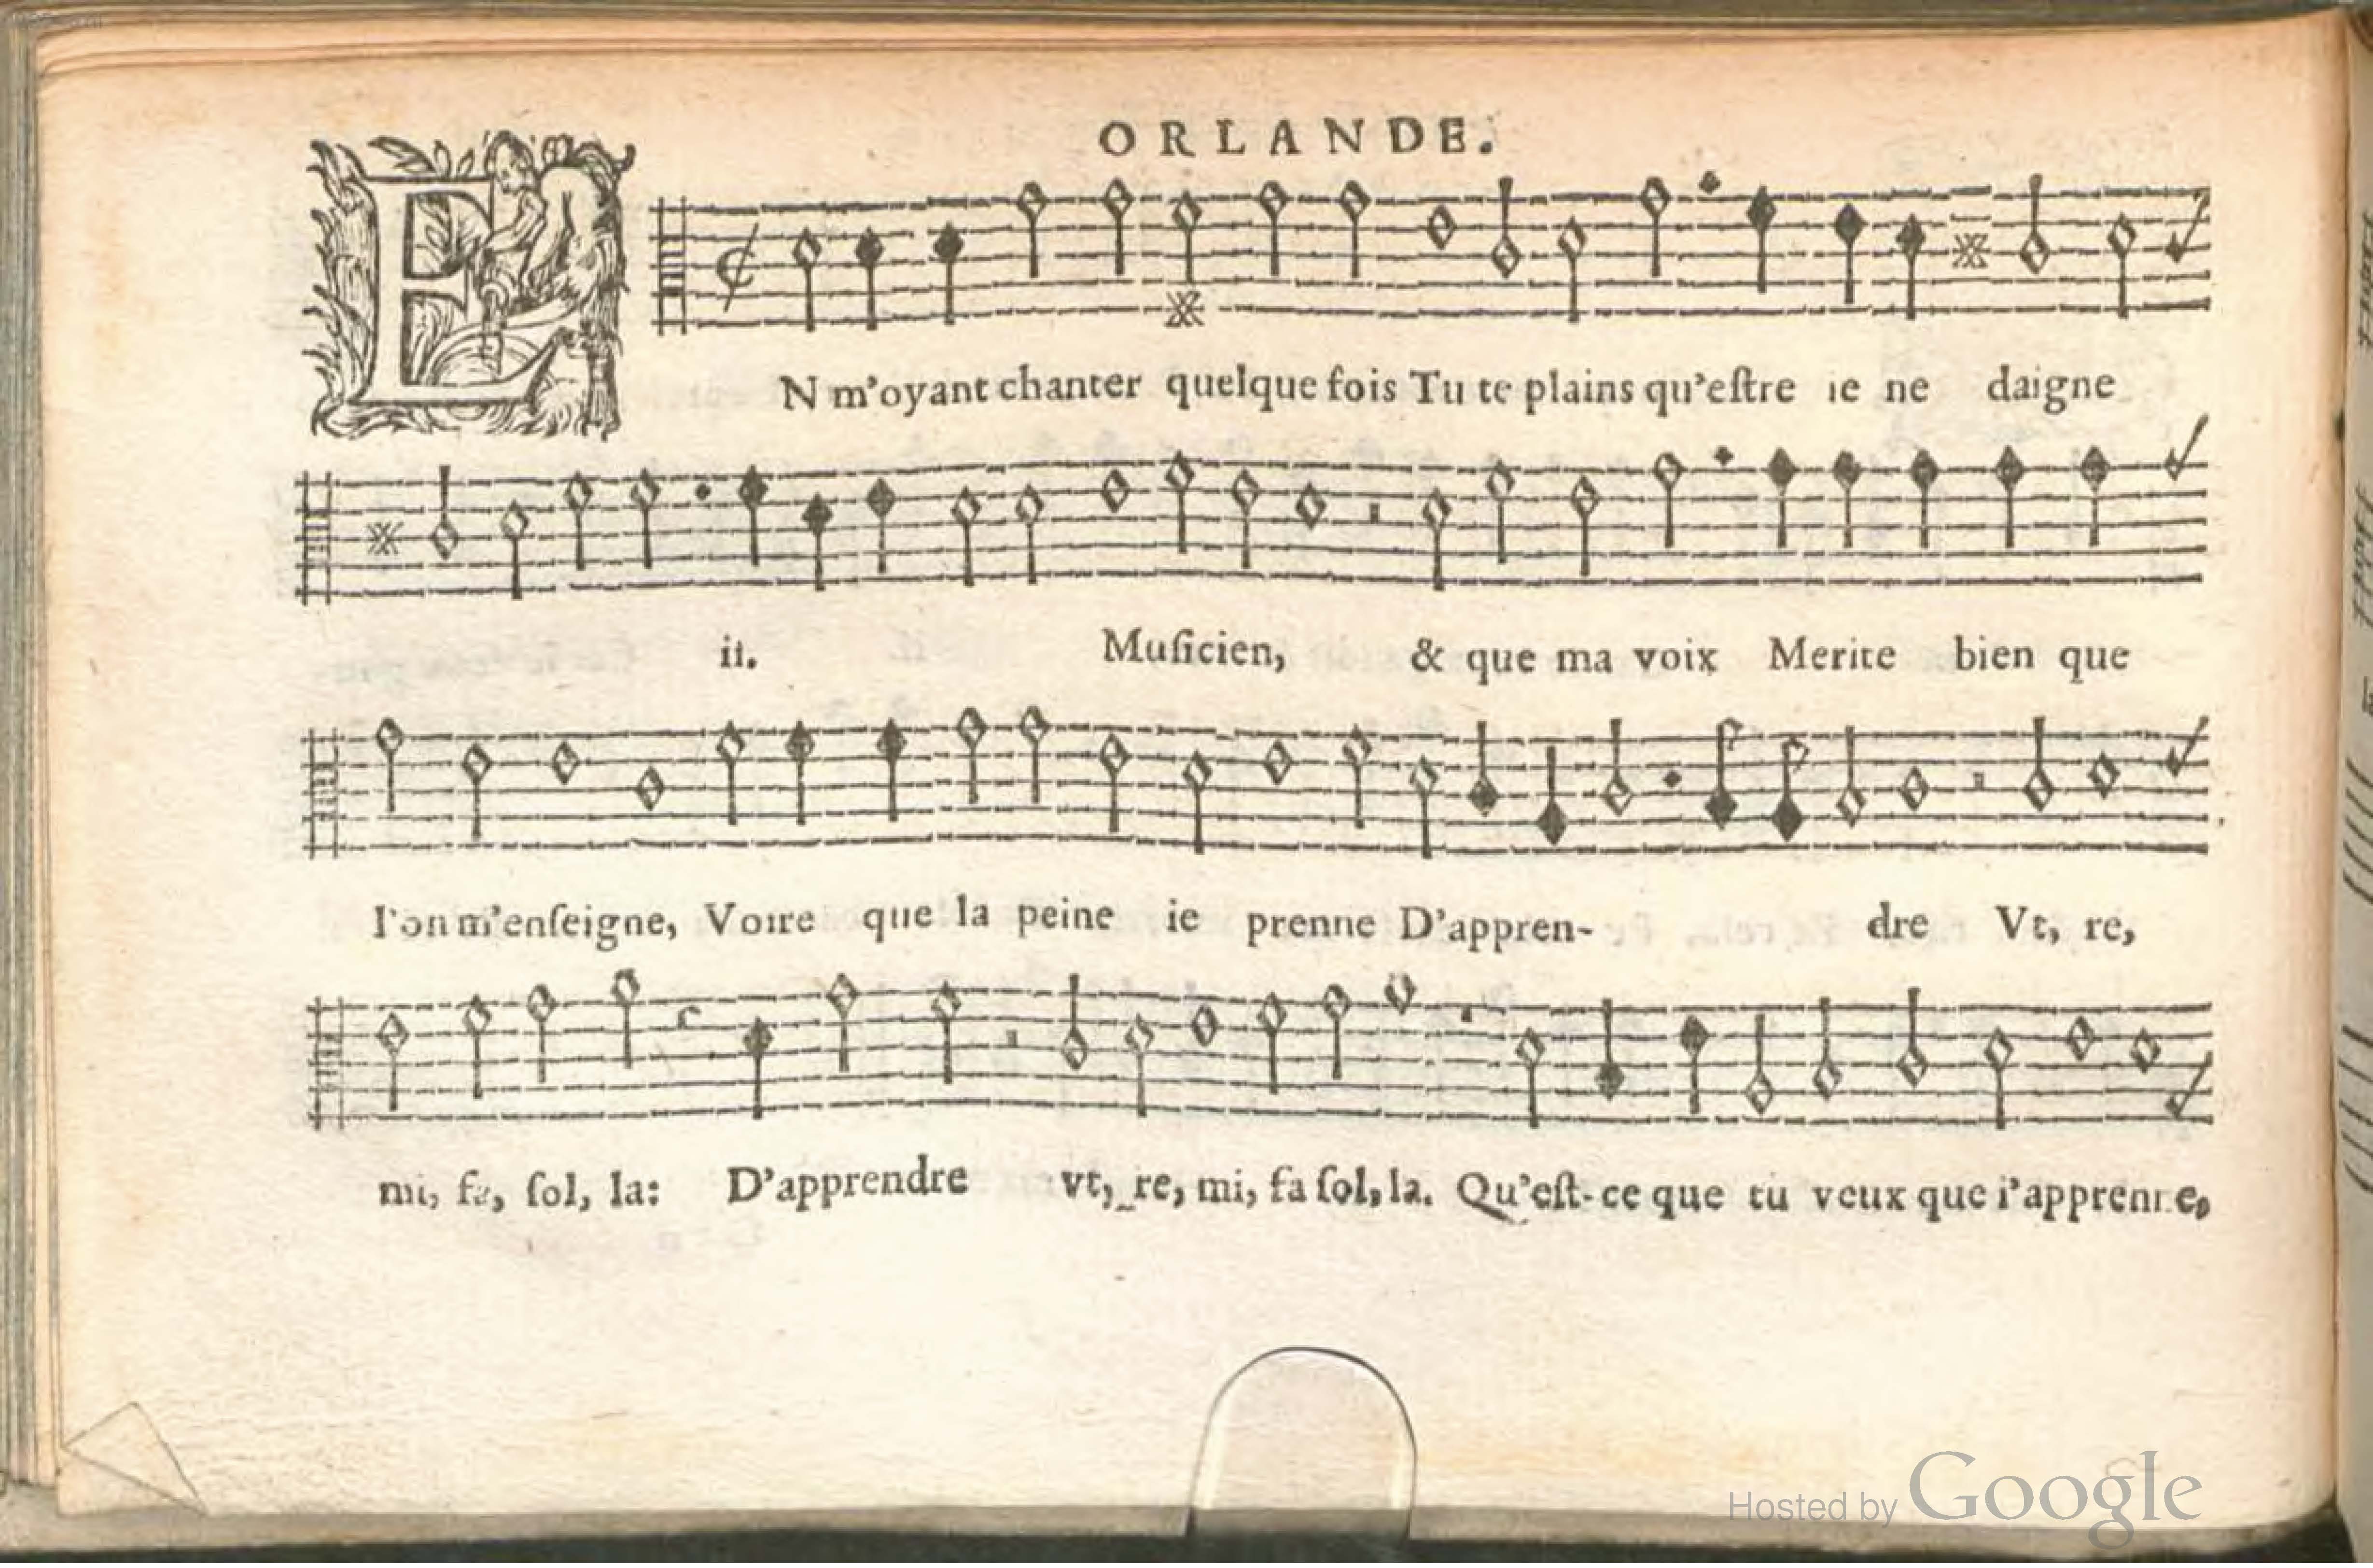 ORLANDE.
EN m'oyant chanter quelque fois Tu te plains qu'eſtre ie ne daigne
ii. Muſicien, & que ma voix Merite bien que
l'on m'enſeigne, Voire que la peine ie prenne D'appren- dre Vt, re,
mi, fa, ſol, la: D'apprendre vt, re, mi, fa ſol, la. Qu'eſt-ce que tu veux que i'apprenne,
Hosted by Google